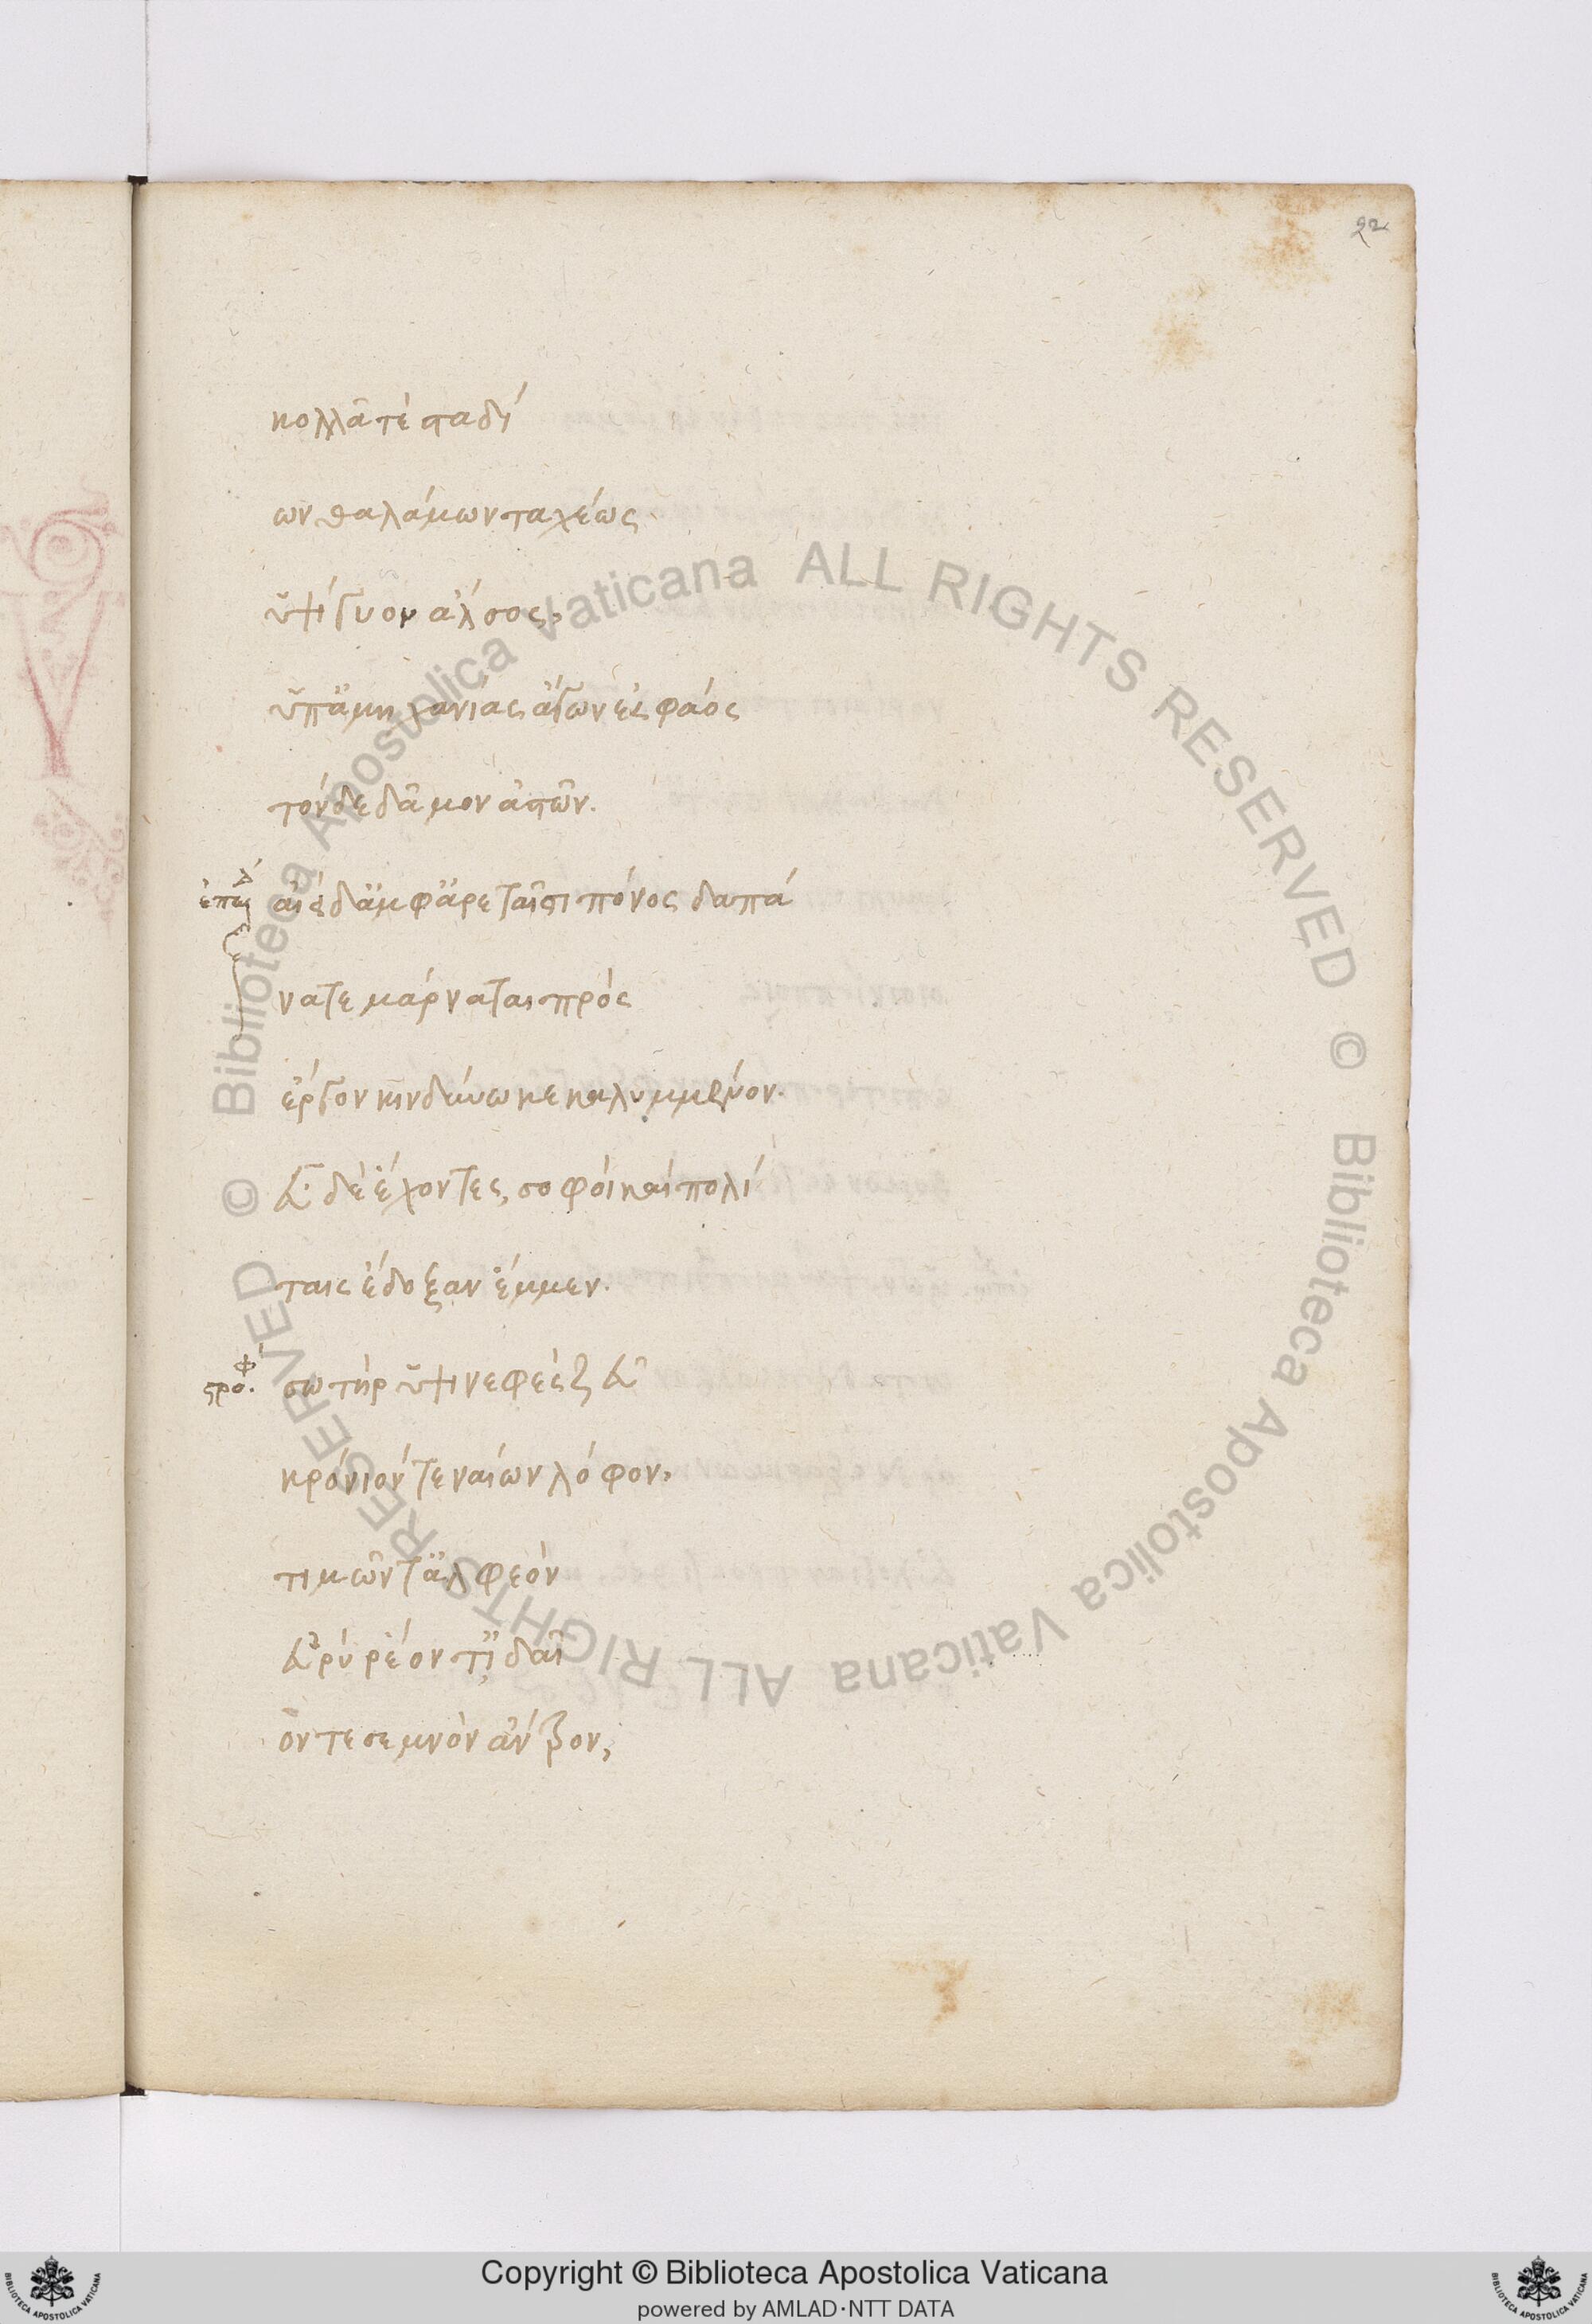 92
κολλᾶ τὲ σταδί
ων θαλάμων ταχέως
ὑψίγυον ἄλσος,
ὑπ' ἀμηχανίας ἄγων ἐς φάος
τόνδε δᾶμον ἀστῶν.
ἐπῳδ αἰὲς δ' ἀμφ' ἀρεταῖσι πόνος δαπά
να τε μάρναται πρὸς
ἔργον κινδύνω κεκαλυμμένον.
εὖ δὲ ἔχοντες, σοφοὶ καὶ πολί
ταις ἔδοξαν ἔμμεν.
στροφ. σωτὴρ ὑψινεφὲς ζεῦ
κρόνιόν τε ναίων λόφον,
τιμῶν τ' ἀλφεὸν
εὐρὺ ῥέοντ' ἰδαῖ
όν τε σεμνὸν ἄντρον,
Biblioteca Apostolica Vaticana ALL RIGHTS RESERVED ©
Biblioteca Apostolica Vaticana ALL RIGHTS RESERVED ©
Copyright © Biblioteca Apostolica Vaticana
powered by AMLAD·NTT DATA
BIBLIOTECA APOSTOLICA VATICANA
BIBLIOTECA APOSTOLICA VATICANA